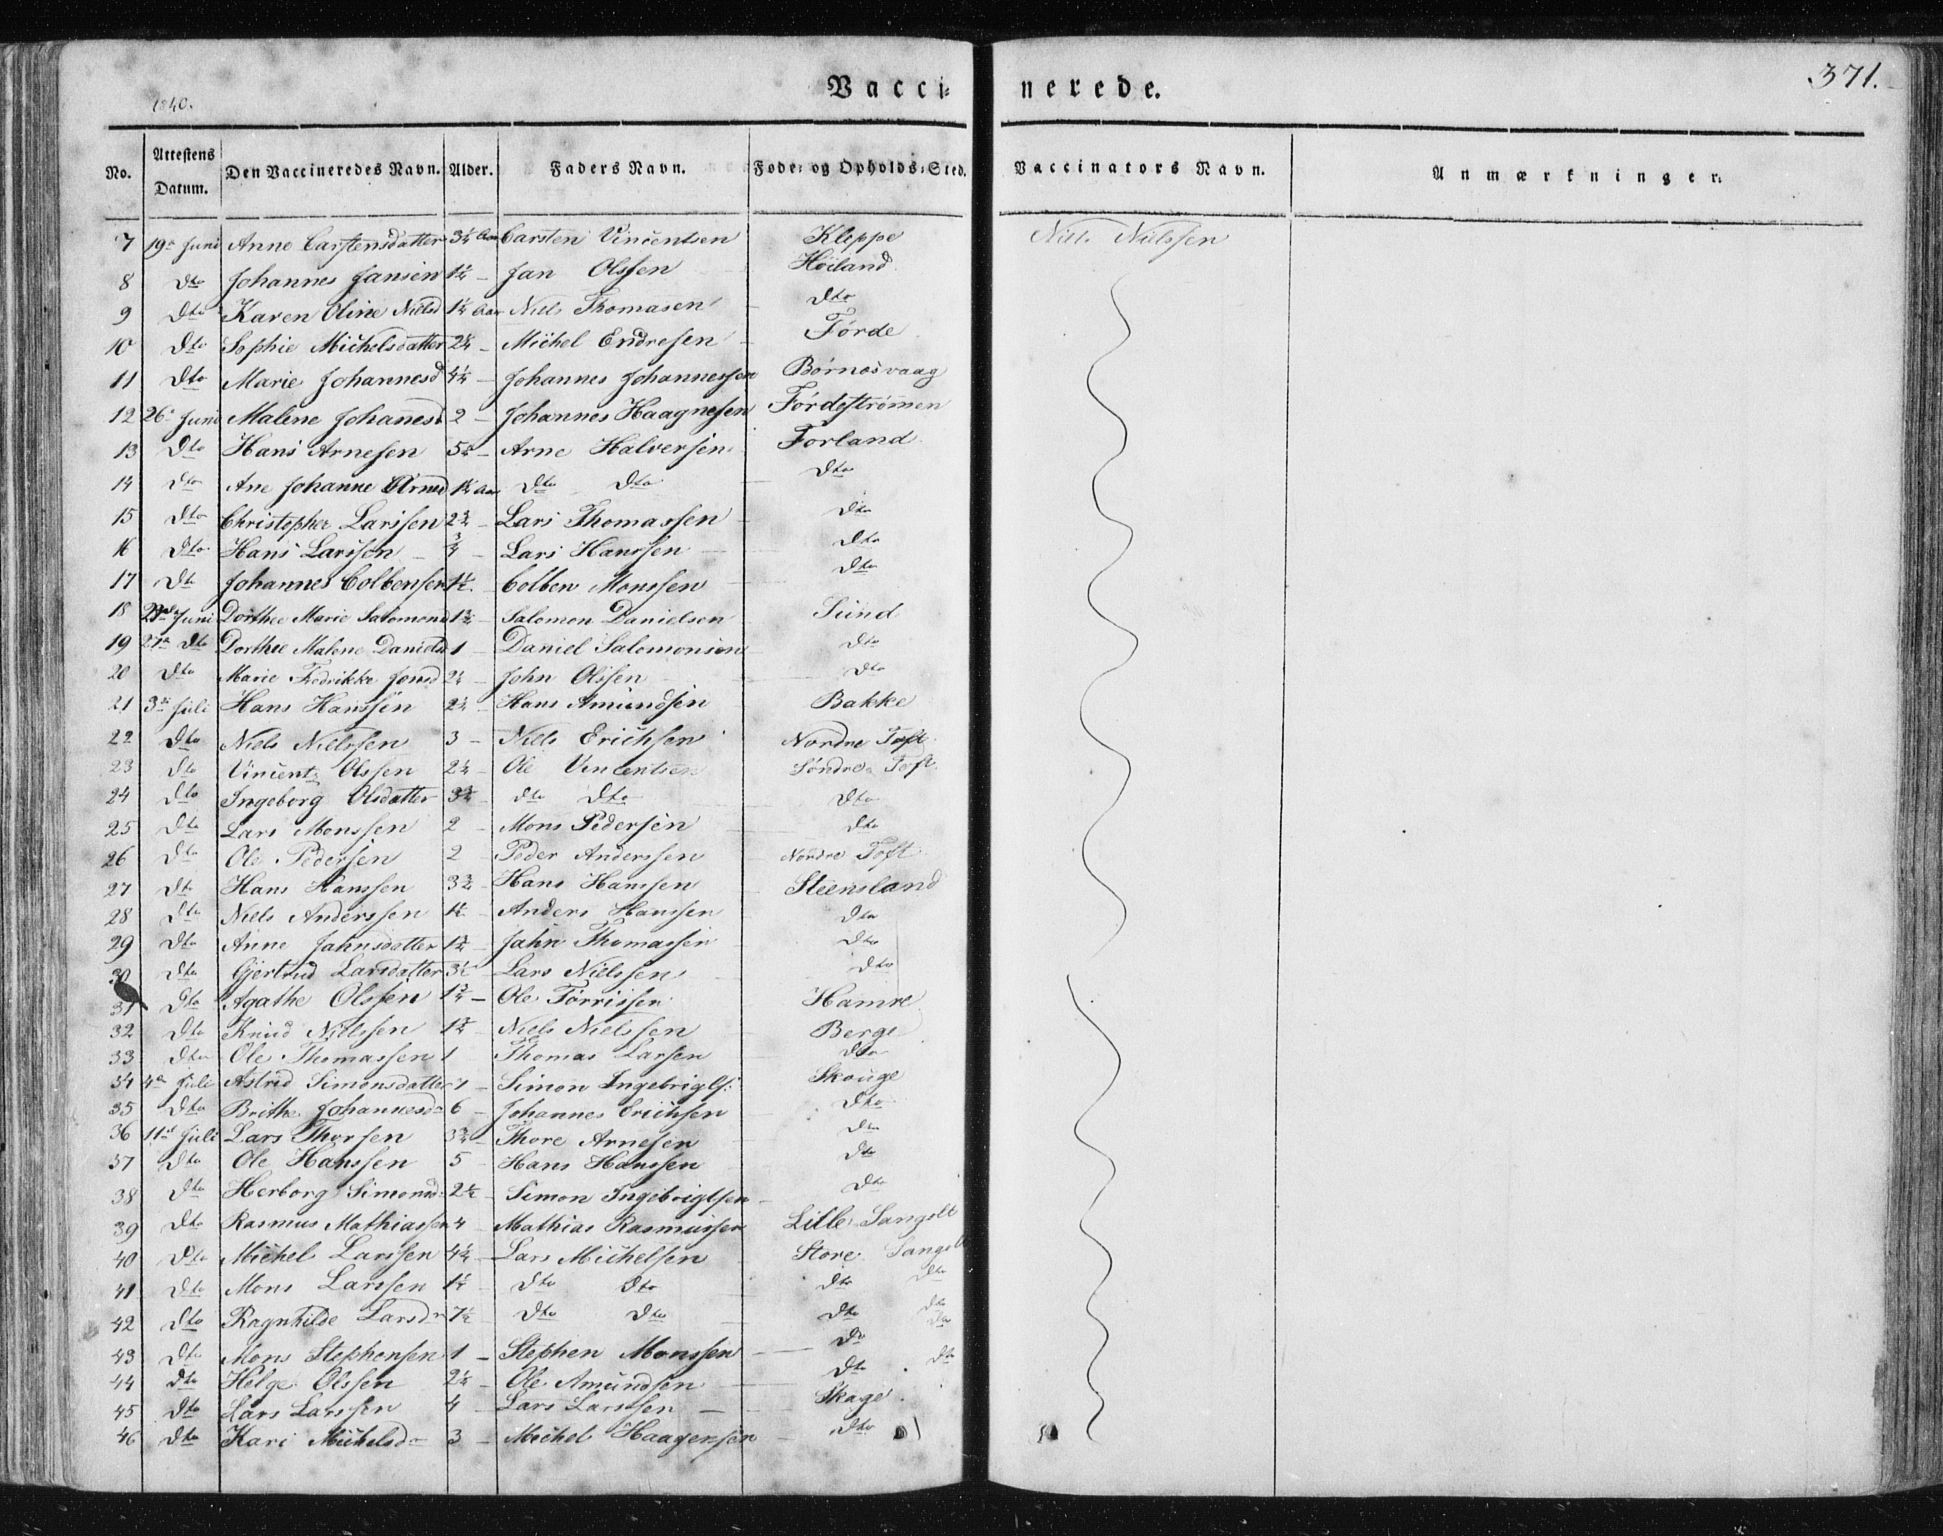 1840.
Vacci= nerede.
371.
No. Attestens Datum. Den Vaccineredes Navn. Alder. Faders Navn. Føde= og Opholds=Sted. Vaccinators Navn. Anmærkninger.
7 19de Juni Anne Carstensdatter 3¼ Aar Carsten Vincentsen Kleppe Niels Nielssen
8 Dto Johannes Jansen Jan Olssen Høiland
9 Dto Karen Oline Nielsd Aar Niels Thomasen Dto
10 Dto Sophie Michelsdatter Michel Endresen Førde
11 Dto Marie Johannesd 4¼ Johannes Johannessen Børnøsvaag
12 26de Juni Malene Johanesd 2 Johannes Haagnesen Førdestrømmen
13 Dto Hans Arnesen Arne Halversen Forland
14 Dto Ane Johanne Arnesd Aar Dto Dto Dto
15 Dto Christopher Larssen 2¾ Lars Thomassen Dto
16 Dto Hans Larssen ¾ Lars Hanssen Dto
17 Dto Johannes Colbensen Colben Monssen Dto
18 Juni Dorthee Marie Salomonsd Salomon Danielsen Sund
19 27de Dto Dorthee Malene Danielsd 1 Daniel Salomonsen Dto
20 Dto Marie Fredrikke Jonsd John Olssen Dto
21 3de Juli Hans Hanssen Hans Amundsen Bakke
22 Dto Niels Nielssen 3 Niels Erichsen Nordre Toft
23 Dto Vincent Olssen Ole Vincentsen Søndre Toft
24 Dto Ingeborg Olsdatter Dto Dto Dto
25 Dto Lars Monssen 2 Mons Pedersen Dto
26 Dto Ole Pedersen 2 Peder Anderssen Nordre Toft
27 Dto Hans Hanssen 3¾ Hans Hanssen Steensland
28 Dto Niels Anderssen Anders Hanssen Dto
29 Dto Anne Jahnsdatter Jahn Thomassen Dto
30 Dto Gjertrud Larsdatter Lars Nielssen Dto
31 Dto Agathe Olssen Ole Tørrissen Hamre
32 Dto Knud Nielssen Niels Nielssen Berge
33 Dto Ole Thomassen 1 Thomas Larsen Dto
34 4de Juli Astrid Simonsdatter 1 Simon Ingebrigts: Skouge
35 Dto Brithe Johannesdr 6 Johannes Erichsen Dto
36 11te Juli Lars Thorsen Thore Arnesen Dto
37 Dto Ole Hanssen 5 Hans Hanssen Dto
38 Dto Herborg Simonsd: 2½ Simon Ingebrigtsen Dto
39 Dto Rasmus Mathiassen 4 Mathias Rasmussen Lille Sangolt
40 Dto Michel Larssen Lars Michelsen Store Sangolt
41 Dto Mons Larssen Dto Dto Dto Dto
42 Dto Ragnhilde Larsdr Dto Dto Dto Dto
43 Dto Mons Stephensen 1 Stephen Monssen Do Do
44 Dto Helge Olssen Ole Amundsen Dto Dto
45 Dto Lars Larssen 4 Lars Larssen Skage
46 Dto Kari Michelsdr 3 Michel Haagensen Dto